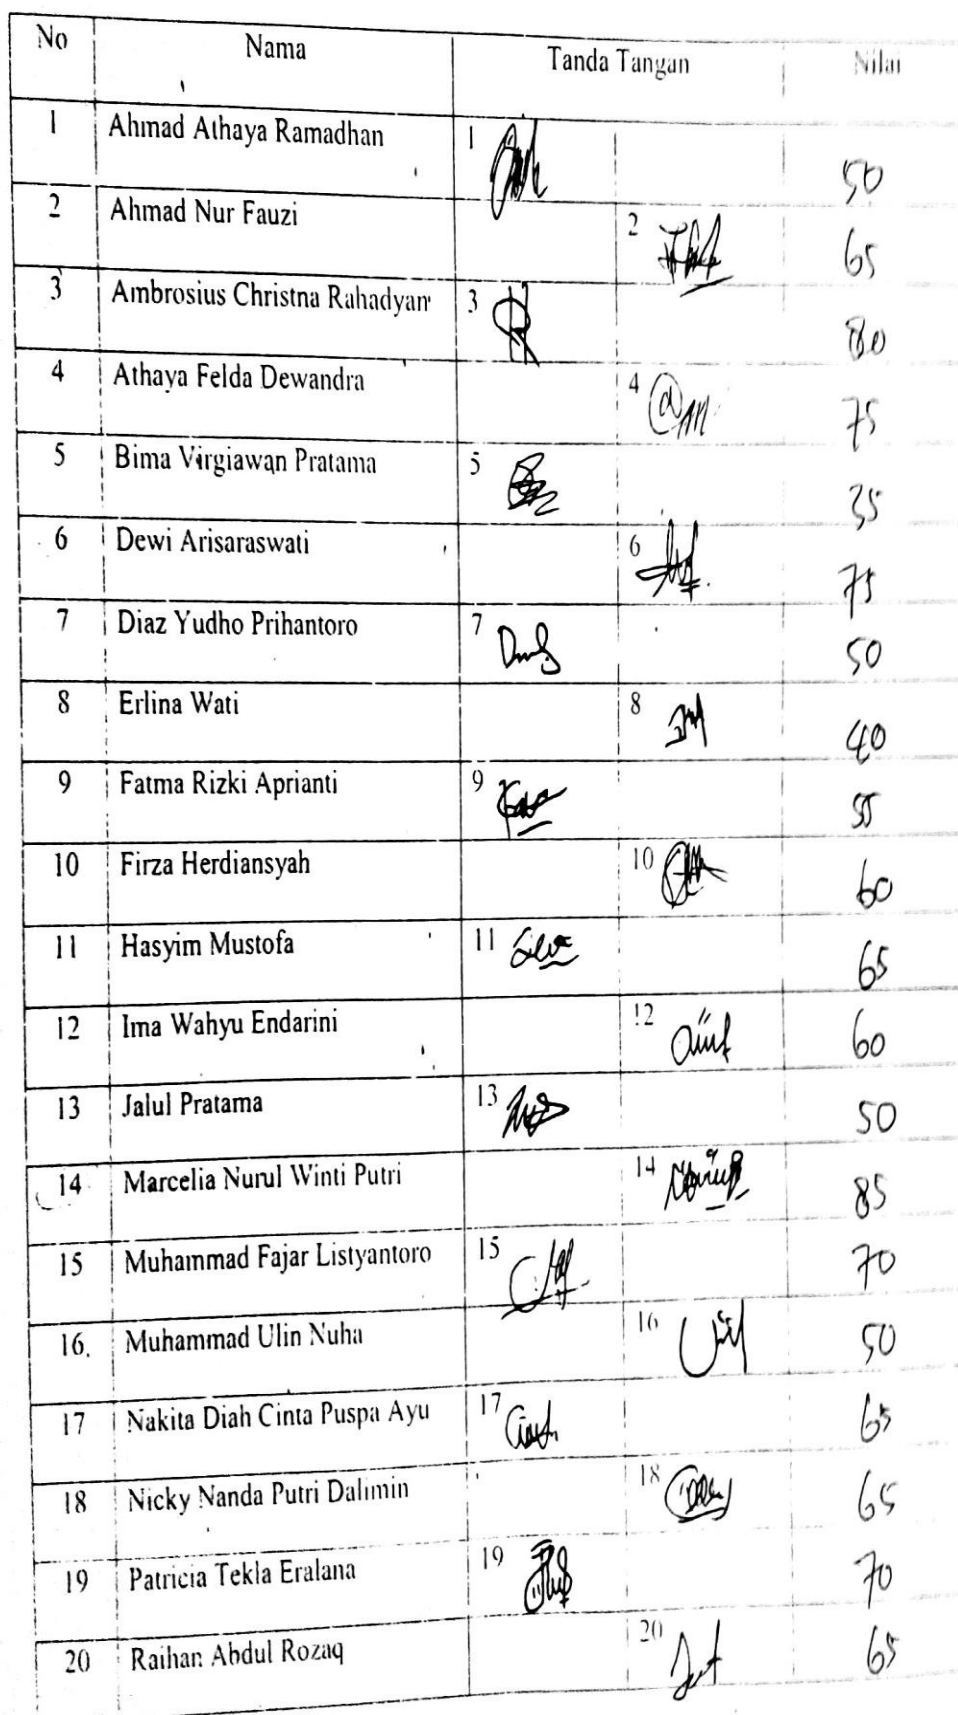 No Nama Tanda Tangan Nilai
1 Ahmad Athaya Ramadhan 1 50
2 Ahmad Nur Fauzi 2 65
3 Ambrosius Christna Rahadyan 3 80
4 Athaya Felda Dewandra 4 75
5 Bima Virgiawan Pratama 5 35
6 Dewi Arisaraswati 6 75
7 Diaz Yudho Prihantoro 7 50
8 Erlina Wati 8 40
9 Fatma Rizki Aprianti 9 55
10 Firza Herdiansyah 10 60
11 Hasyim Mustofa 11 65
12 Ima Wahyu Endarini 12 60
13 Jalul Pratama 13 50
14 Marcelia Nurul Winti Putri 14 85
15 Muhammad Fajar Listyantoro 15 70
16. Muhammad Ulin Nuha 16 50
17 Nakita Diah Cinta Puspa Ayu 17 65
18 Nicky Nanda Putri Dalimin 18 65
19 Patricia Tekla Eralana 19 70
20 Raihan Abdul Rozaq 20 65